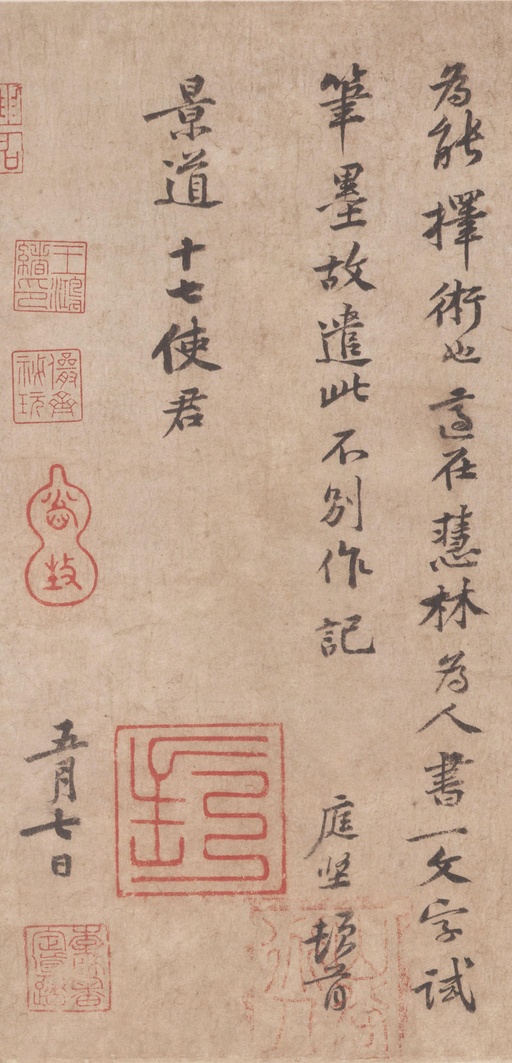 為能擇術也適在慧林為人書一文字試
筆墨故遣此不別作記
庭坚頓首
景道十七使君
五月七日